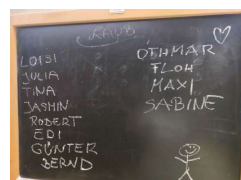 LOISI
JULIA
TINA
JASMIN
ROBERT
EDI
GÜNTER
BERND
OTHMAR
FLOH
MAXI
SABINE